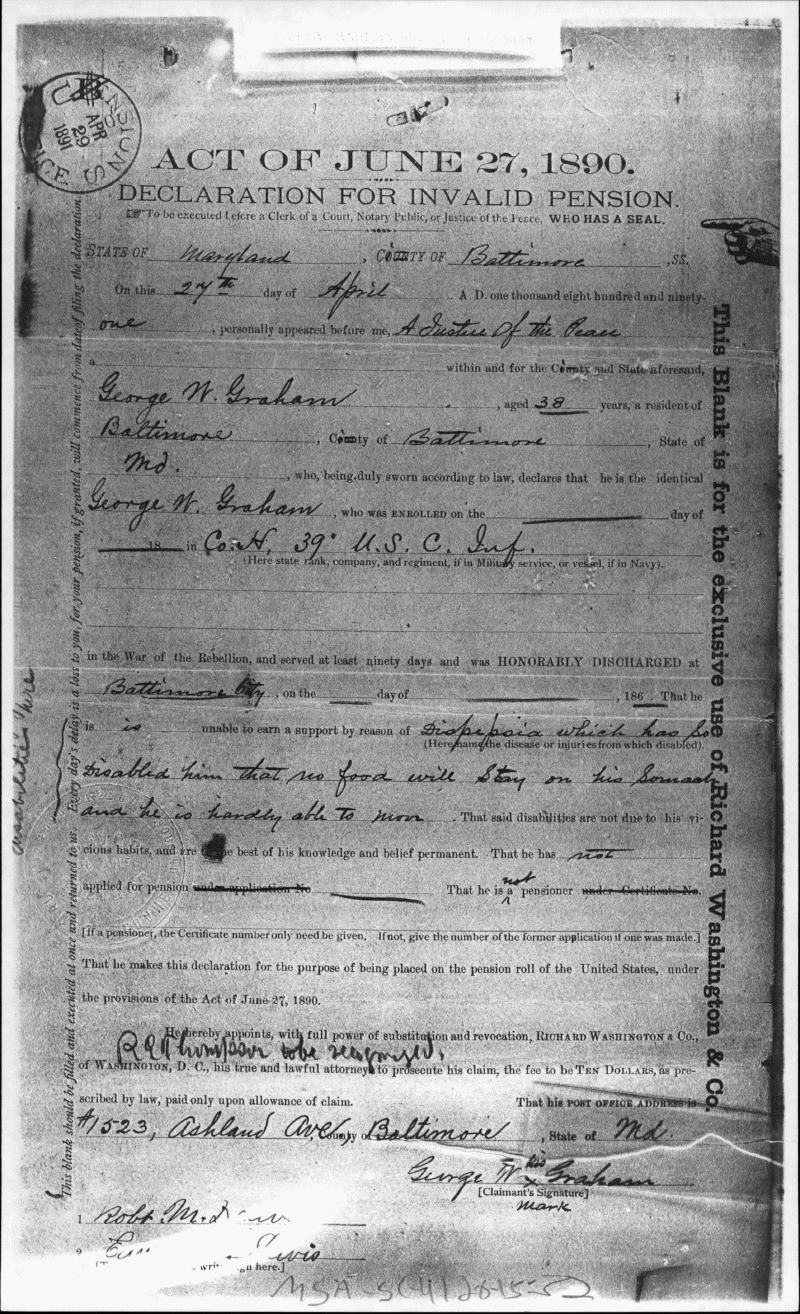 PENSIONS
APR
29
1891
ACT OF JUNE 27, 1890.
DECLARATION FOR INVALID PENSION.
To be executed before a Clerk of a Court, Notary Public, or Justice of the Peace, WHO HAS A SEAL.
STATE OF Maryland, COUNTY OF Battimore, SS.
On this 27th day of April A. D. one thousand eight hundred and ninety-
one, personally appeared before me, A Justice Of the Peace
a within and for the County and State aforesaid,
George W. Graham, aged 38 years, a resident of
Baltimore, County of Battimore, State of
Md., who, being duly sworn according to law, declares that he is the identical
George W. Graham, who was ENROLLED on the day of
18 in Co. H, 39" U. S. C. Inf.
(Here state rank, company, and regiment, if in Military service, or vessel, if in Navy).
in the War of the Rebellion, and served at least ninety days and was HONORABLY DISCHARGED at
Battimore City, on the day of , 186 . That he
is is unable to earn a support by reason of Dispepsia which has So
(Here name the disease or injuries from which disabled).
Disabled him that no food will Stay on his Somach
and he is hardly able to move. That said disabilities are not due to his vi-
cious habits, and are best of his knowledge and belief permanent. That he has not
applied for pension under application No That he is a not pensioner under Certificate No.
[If a pensioner, the Certificate number only need be given. If not, give the number of the former application if one was made.]
That he makes this declaration for the purpose of being placed on the pension roll of the United States, under
the provisions of the Act of June 27, 1890.
He hereby appoints, with full power of substitution and revocation, RICHARD WASHINGTON & Co.,
Thompson to be recognized.
of WASHINGTON, D. C., his true and lawful attorney to prosecute his claim, the fee to be TEN DOLLARS, as pre-
scribed by law, paid only upon allowance of claim. That his POST OFFICE ADDRESS is
#1523, Ashland Ave, County of Baltimore, State of Md.
George W his x Graham
[Claimant's Signature]
mark
1 Robt M.
2
here.]
This Blank is for the exclusive use of Richard Washington & Co.
This blank should be filled and executed at once and returned to us. Every day's delay is a loss to you, for your pension, if granted, will commence from date of filing the declaration.
disabilities here